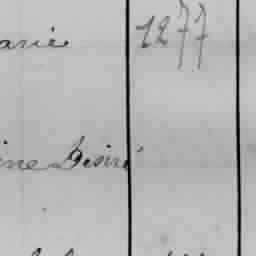 arie 1277
ine Desiré